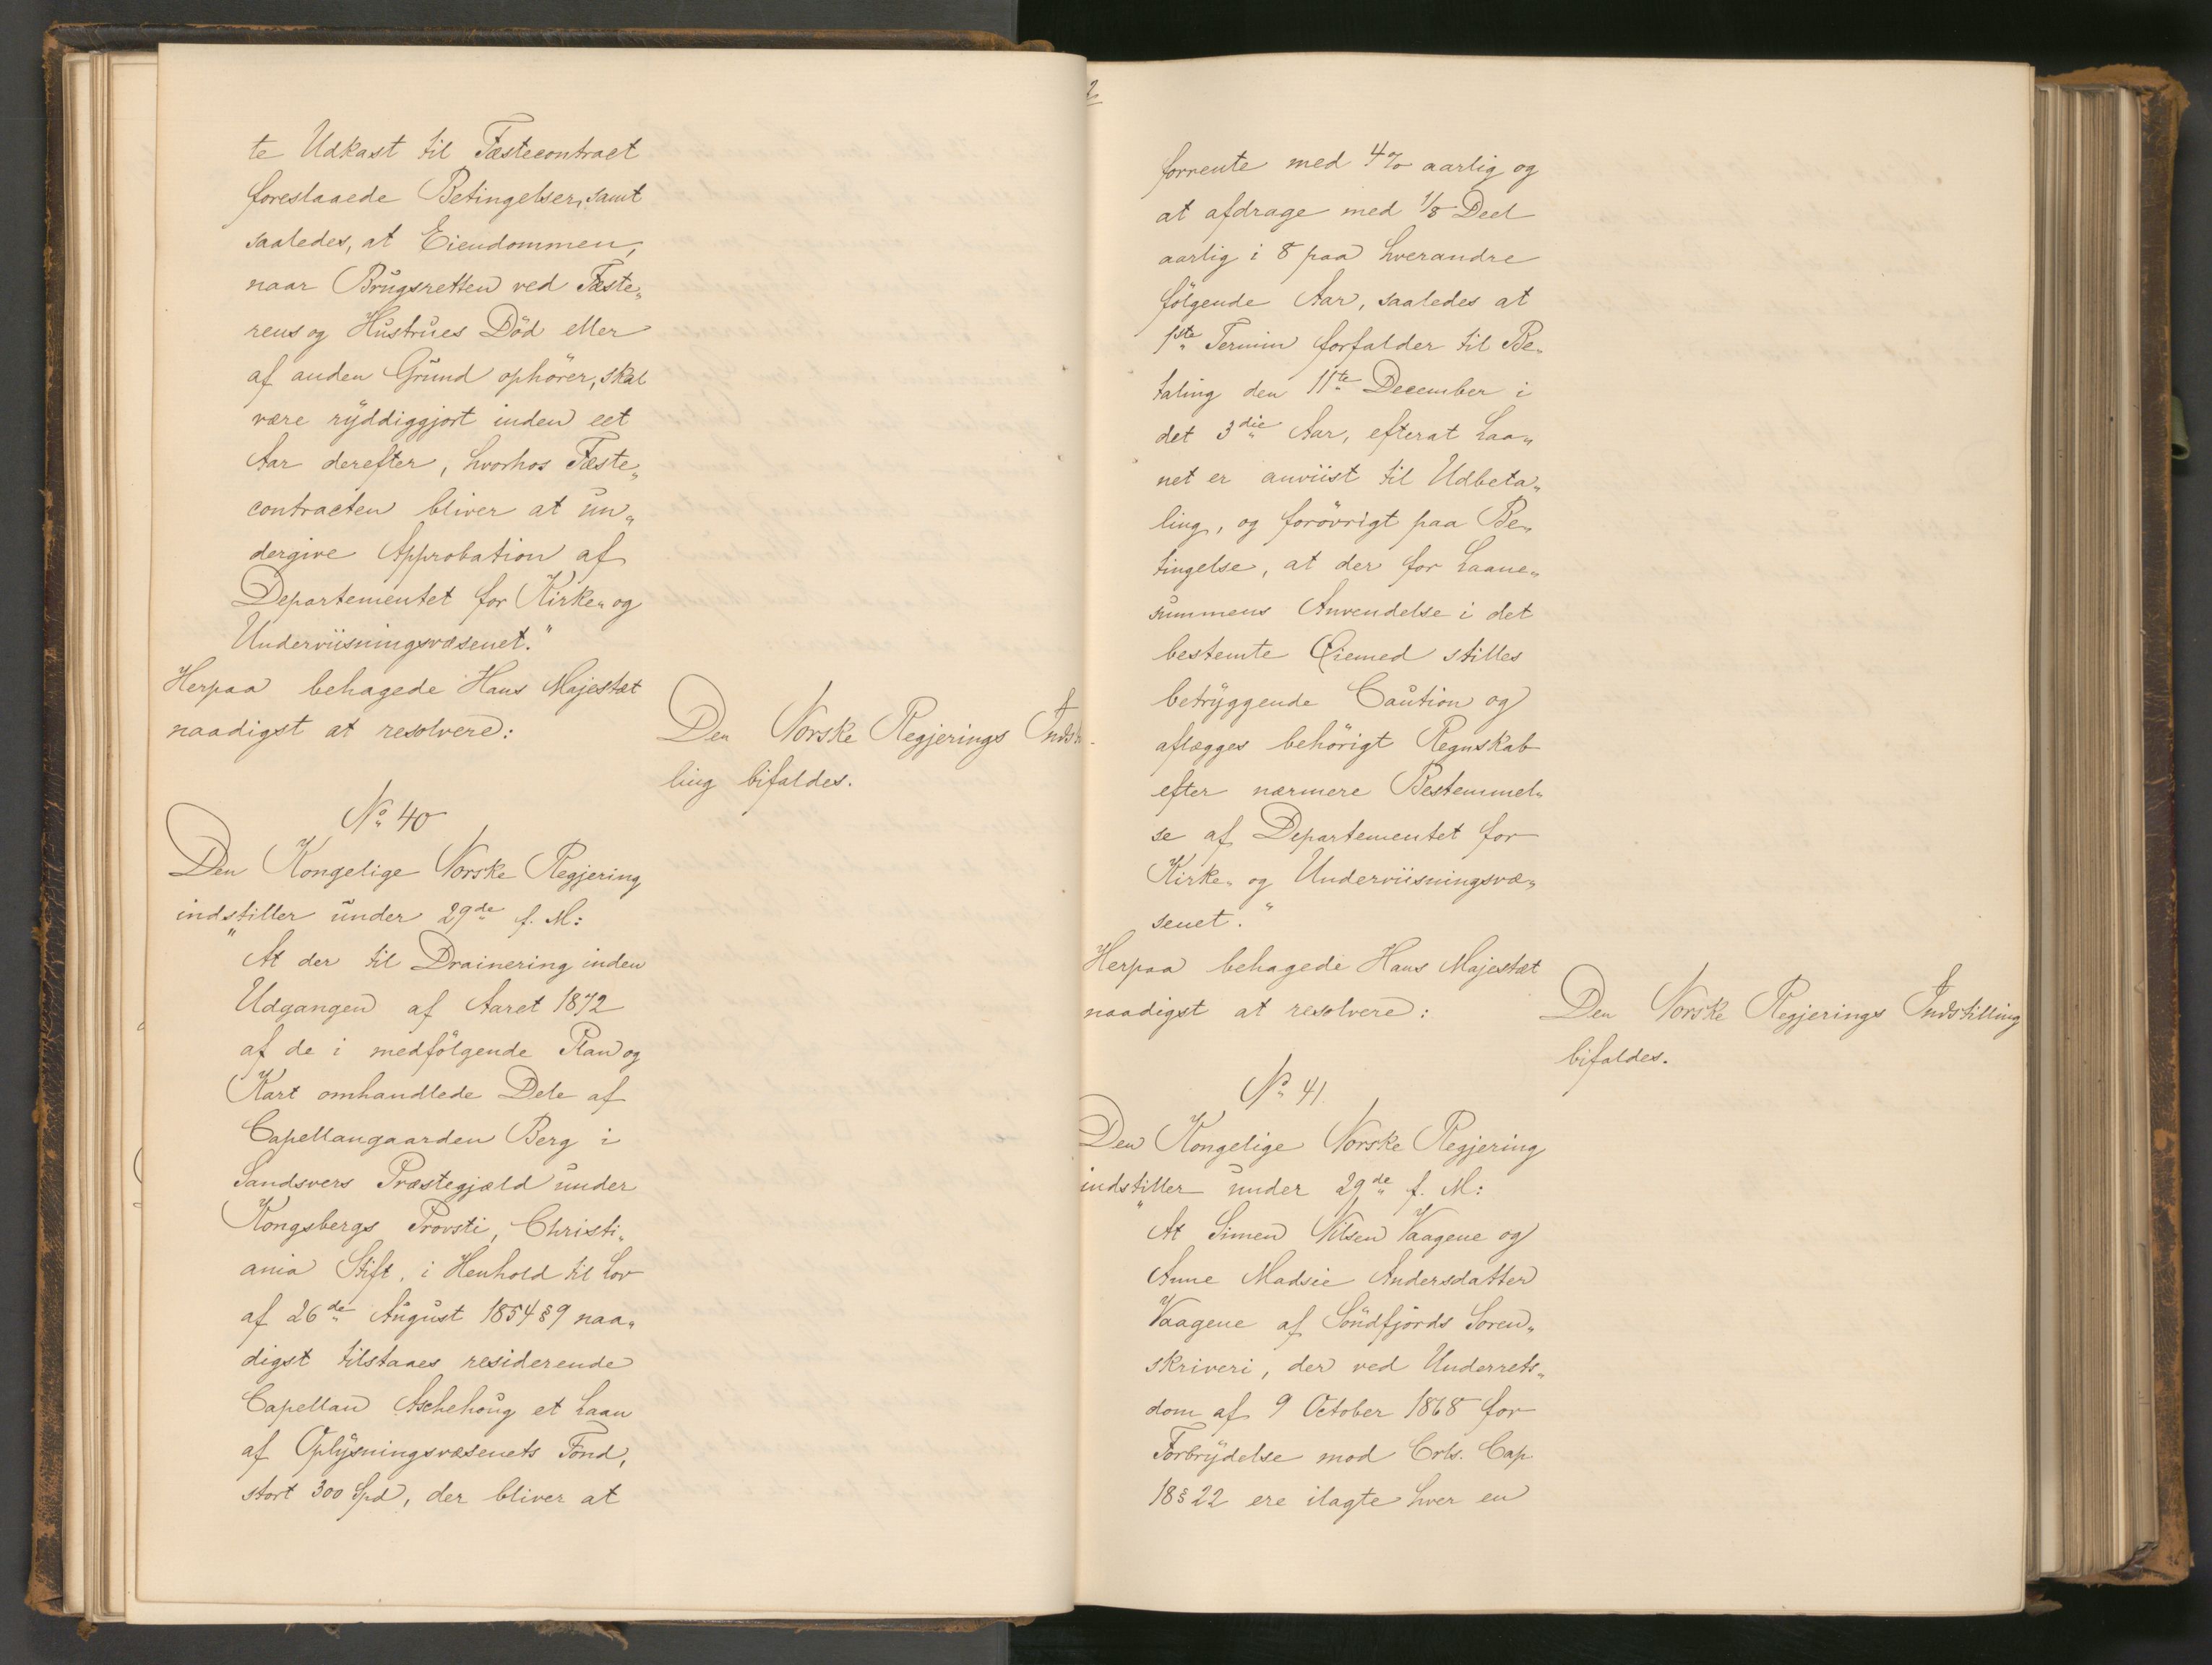 te Udkast til Fæstecontract
foreslaaede Betingelser, samt
saaledes, at Eiendommen,
naar Brugsretten ved Fæste„
rens og Hustrues Död eller
af anden Grund ophörer, skal
være ryddiggjort inden eet
Aar derefter, hvorhos Fæste„
contracten bliver at un„
dergive Approbation af
Departementet for Kirke„ og
Underviisningsvæsenet."
Herpaa behagede Hans Majestæt
naadigst at resolvere:
Den Norske Regjerings Indstil
ling bifaldes.
No 40
Den Kongelige Norske Regjering
indstiller under 29de f. M:
"At der til Drainering inden
Udgangen af Aaret 1872
af de i medfölgende Plan og
Kart omhandlede Dele af
Capellangaarden Berg i
Sandsvers Præstegjæld under
Kongsbergs Provsti, Christi„
ania Stift, i Henhold til Lov
af 26de August 1854 § 9 naa„
digst tilstaaes residerende
Capellan Aschehoug et Laan
af Oplysningsvæsenets Fond,
stort 300 Spd, der bliver at
2
forrente med 4% aarlig og
at afdrage med 1/8 Deel
aarlig i 8 paa hverandre
fölgende Aar, saaledes at
1ste Termin forfalder til Be„
taling den 11te December i
det 3die Aar, efterat Laa„
net er anviist til Udbeta„
ling, og forövrigt paa Be„
tingelse, at der for Laane„
summens Anvendelse i det
bestemte Öiemed stilles
betryggende Caution og
aflægges behörigt Regnskab
efter nærmere Bestemmel„
se af Departementet for
Kirke„ og Underviisningsvæ„
senet."
Herpaa behagede Hans Majestæt
naadigst at resolvere:
Den Norske Regjerings Indstilling
bifaldes.
No 41.
Den Kongelige Norske Regjering
indstiller under 29de f. M:
"At Simen Nilsen Vaagene og
Anne Madsie Andersdatter
Vaagene af Söndfjords Soren„
skriveri, der ved Underrets„
dom af 9 October 1868 for
Forbrydelse mod Crls. Cap
18 § 22 ere ilagte hver en